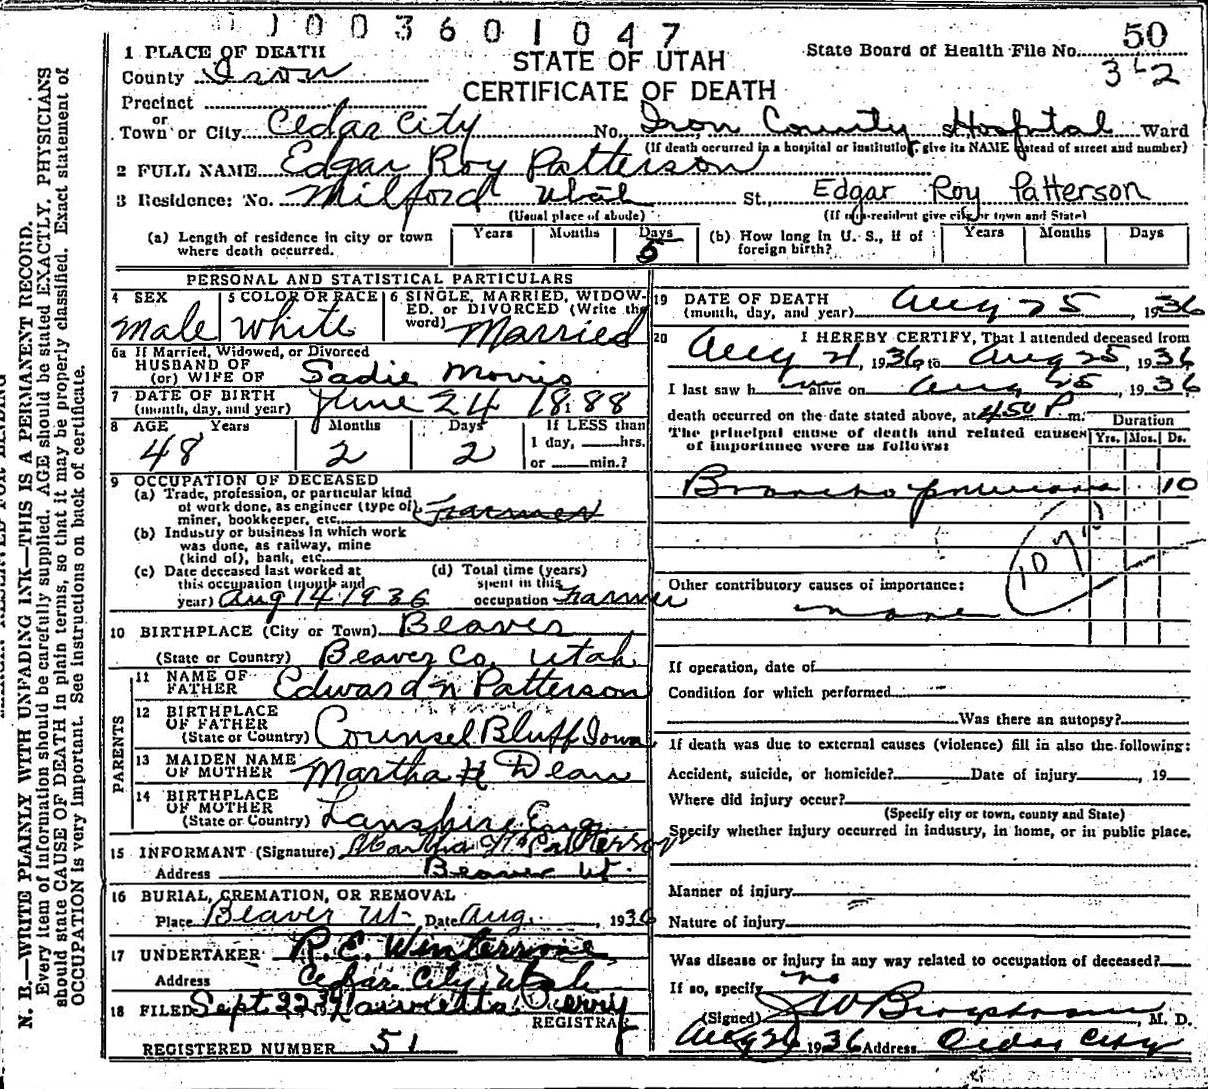 1003601047
STATE OF UTAH
CERTIFICATE OF DEATH
State Board of Health File No. 50
362
1 PLACE OF DEATH
County Iron
Precinct
or
Town or City Cedar City No. Iron County Hospital Ward
(If death occurred in a hospital or institution, give its NAME instead of street and number)
2 FULL NAME Edgar Roy Patterson
3 Residence: No. Milford Utah St., Edgar Roy Patterson
(Usual place of abode) (If non-resident give city or town and State)
(a) Length of residence in city or town where death occurred. Years Months Days 5 (b) How long in U. S., if of foreign birth? Years Months Days
PERSONAL AND STATISTICAL PARTICULARS
4 SEX Male
5 COLOR OR RACE White
6 SINGLE, MARRIED, WIDOWED, or DIVORCED (Write the word) Married
6a If Married, Widowed, or Divorced
HUSBAND OF
(or) WIFE OF Sadie Morris
7 DATE OF BIRTH
(month, day, and year) June 24 1888
8 AGE Years Months Days If LESS than
48 2 2 1 day, hrs.
or min.?
9 OCCUPATION OF DECEASED
(a) Trade, profession, or particular kind
of work done, as engineer (type of),
miner, bookkeeper, etc. Farmer
(b) Industry or business in which work
was done, as railway, mine
(kind of), bank, etc.
(c) Date deceased last worked at
this occupation (month and
year) Aug 14 1936
(d) Total time (years)
spent in this
occupation Farmer
10 BIRTHPLACE (City or Town) Beaver
(State or Country) Beaver Co. Utah
PARENTS
11 NAME OF
FATHER Edward N Patterson
12 BIRTHPLACE
OF FATHER
(State or Country) Counsel Bluff Iowa
13 MAIDEN NAME
OF MOTHER Martha H Dean
14 BIRTHPLACE
OF MOTHER
(State or Country) Lanshire Eng
15 INFORMANT (Signature) Martha H Patterson
Address Beaver Ut.
16 BURIAL, CREMATION, OR REMOVAL
Place Beaver Ut Date Aug. , 1936
17 UNDERTAKER
Address Cedar City, Utah
18 FILED Sept 22
REGISTRAR
REGISTERED NUMBER 51
19 DATE OF DEATH
(month, day, and year) Aug 25, 1936
20 I HEREBY CERTIFY, That I attended deceased from
Aug 21, 1936, to Aug 25, 1936
I last saw him alive on Aug 25, 1936
death occurred on the date stated above, at 4:50 P. m.
The principal cause of death and related causes
of importance were as follows:
Duration
Yrs. Mos. Ds.
Broncho pneumonia 10
107
Other contributory causes of importance:
none
If operation, date of
Condition for which performed
Was there an autopsy?
If death was due to external causes (violence) fill in also the following:
Accident, suicide, or homicide? Date of injury , 19
Where did injury occur?
(Specify city or town, county and State)
Specify whether injury occurred in industry, in home, or in public place.
Manner of injury
Nature of injury
Was disease or injury in any way related to occupation of deceased?
no
If so, specify
(Signed) , M. D.
Aug 26 1936 Address Cedar City
N. B.—WRITE PLAINLY WITH UNFADING INK—THIS IS A PERMANENT RECORD.
Every item of information should be carefully supplied. AGE should be stated EXACTLY, PHYSICIANS
should state CAUSE OF DEATH in plain terms, so that it may be properly classified. Exact statement of
OCCUPATION is very important. See instructions on back of certificate.